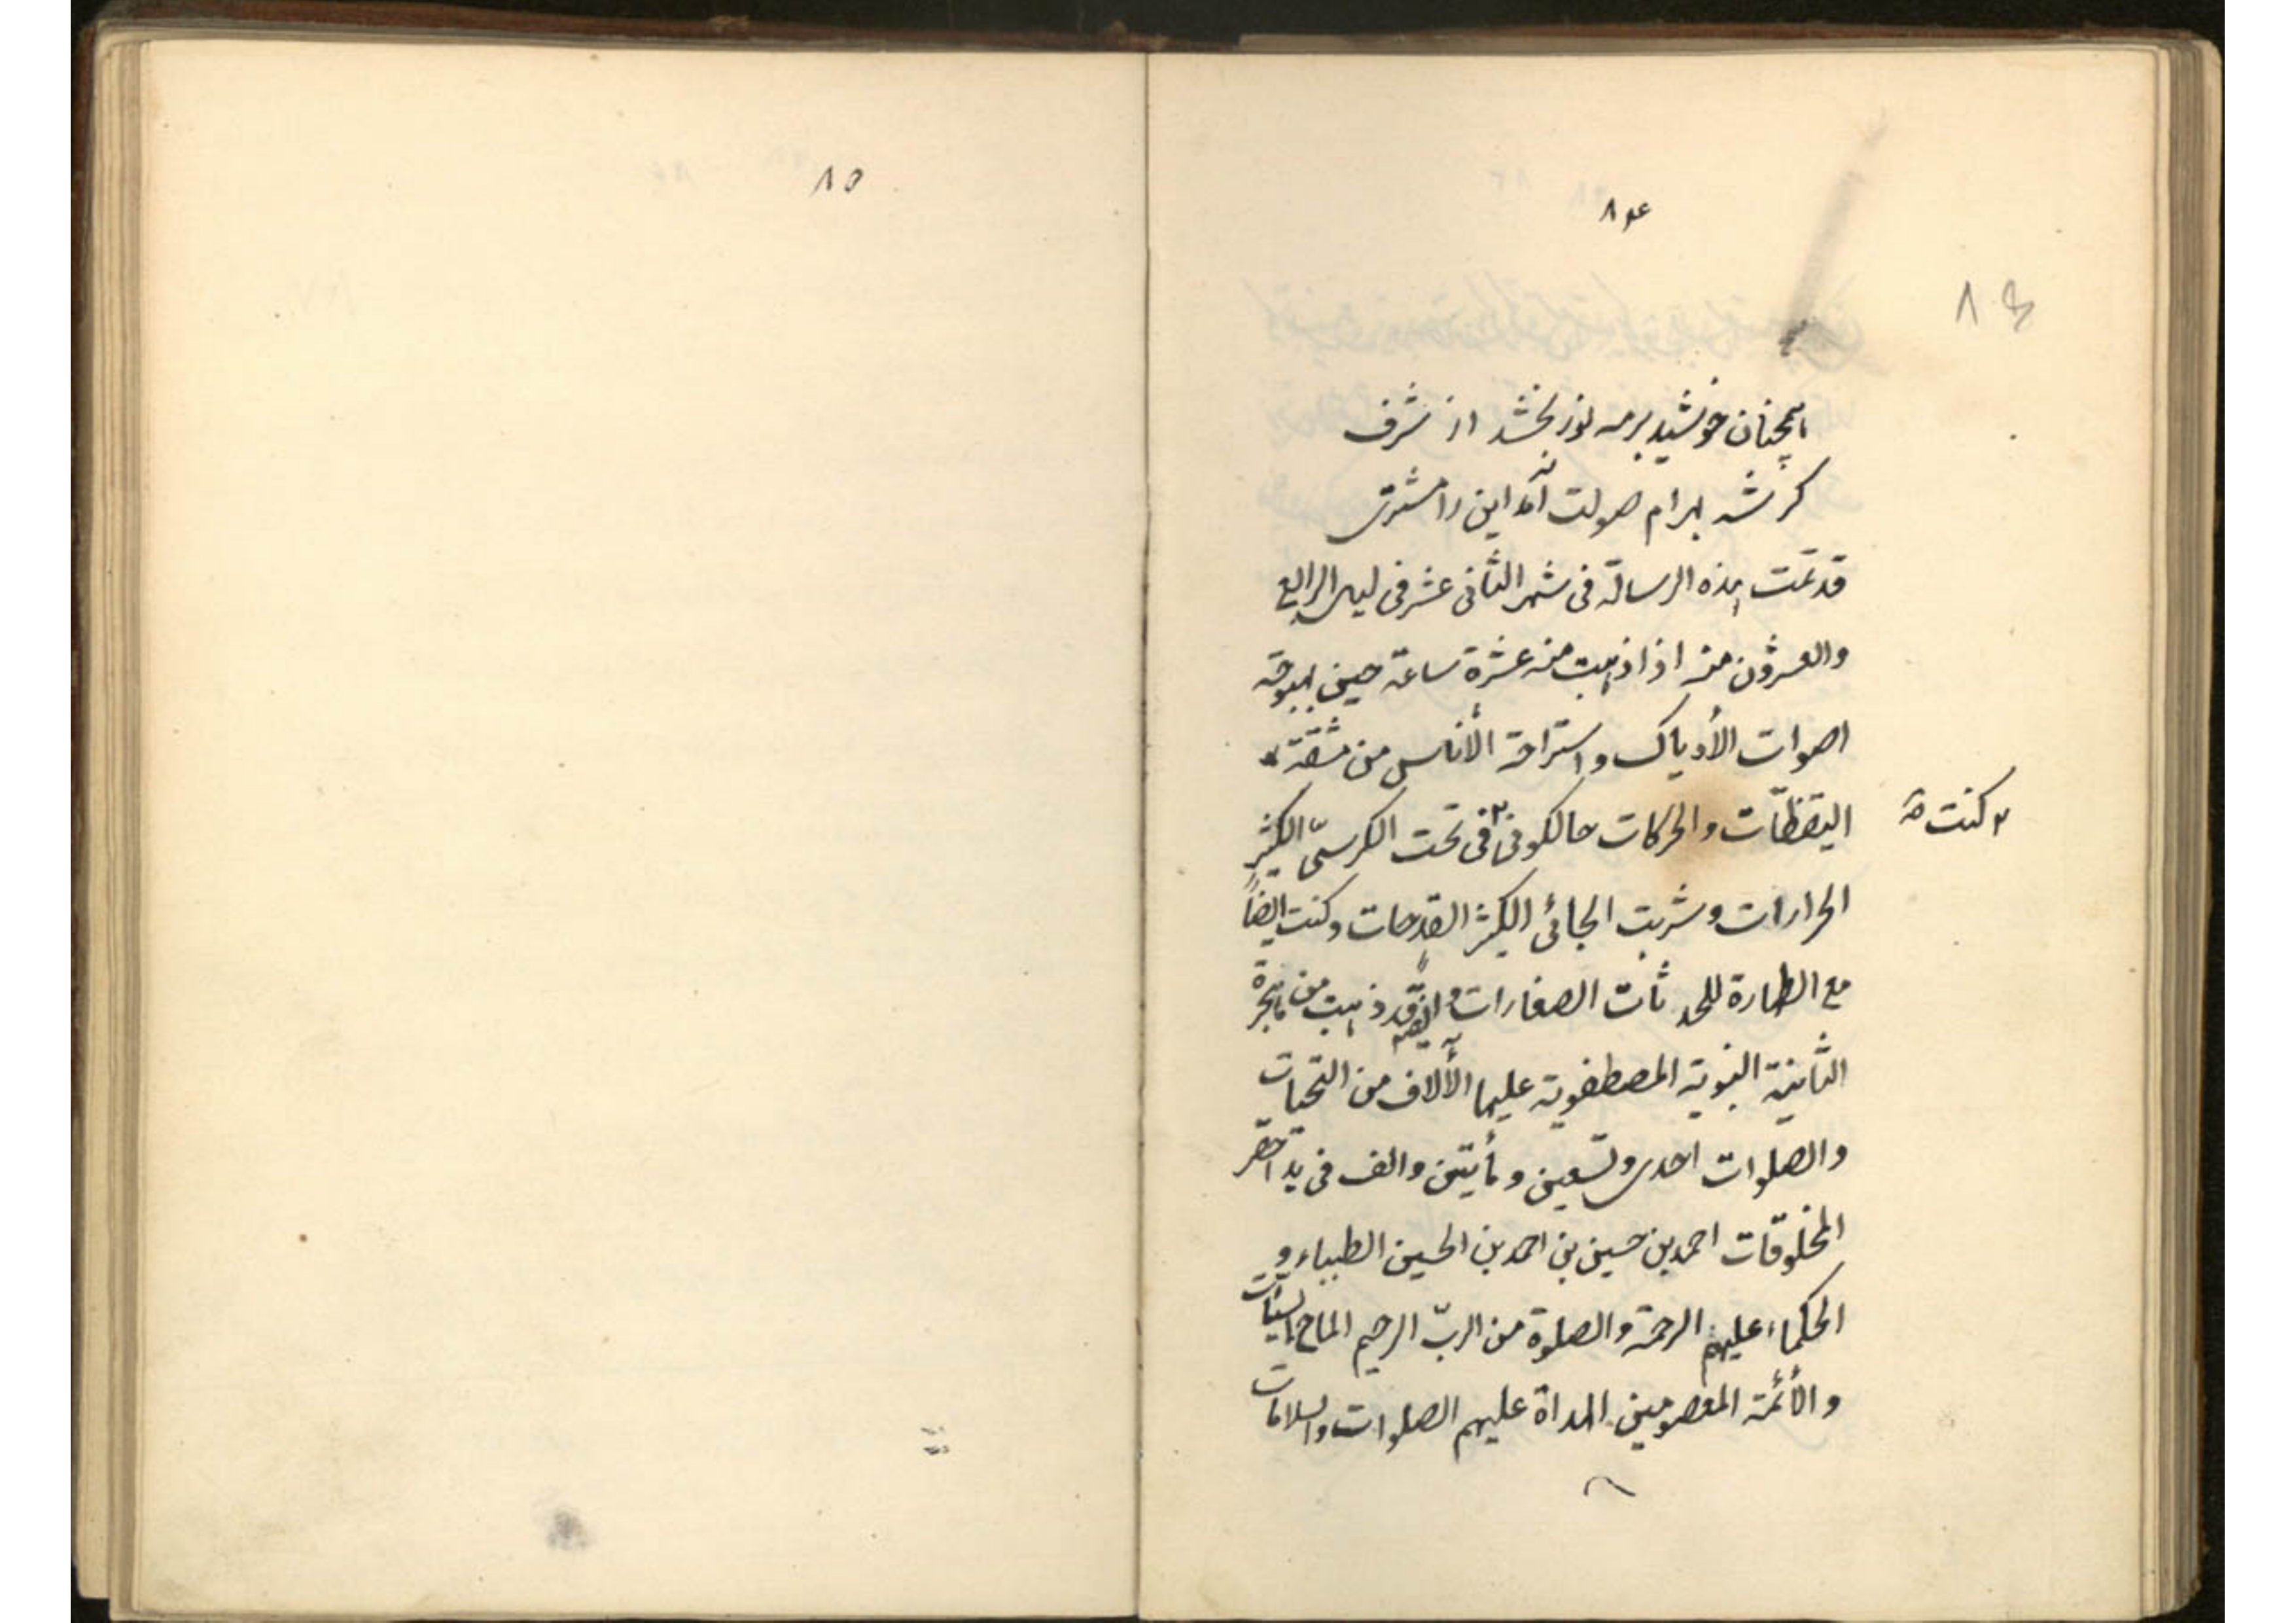 ۸۴
۸۴
همچنان خورشید بر مه نور بخشد از شرف
کر شه بهرام صولت آمد این را مشتری
قد تمت هذه الرسالة فی شهر الثانی عشر فی لیل الرابع
والعشرون منه اذا ذهبت منه عشرة ساعة حین
اصوات الأدیاک و استراحة الأناس من مشقة
الیقظات والحرکات حالکونی فی تحت الکرسیّ الکثیر
کنت صح
الحرارات و شربت الجائی الکثیر القدحات و کنت ایضاً
مع الطهارة للحدثات الصغارات و ایضاً قد ذهبت من هجرة
الثانیة النبویة المصطفویة علیها الألاف من التحیات
والصلوات احدی وتسعین و مأیتین والف فی ید احقر
المخلوقات احمد بن حسین بن احمد بن الحسین الطبباء و
الحکماء علیهم الرحمة والصلوة من الربّ الرحیم الماح السیئات
والأئمة المعصومین الهداة علیهم الصلوات والسلامات
۸۵